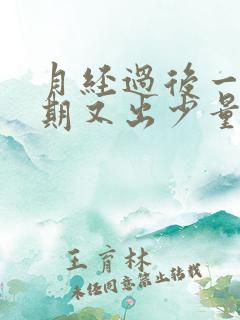 月经過後一
期又出少量
王育林
未经同意禁止转载